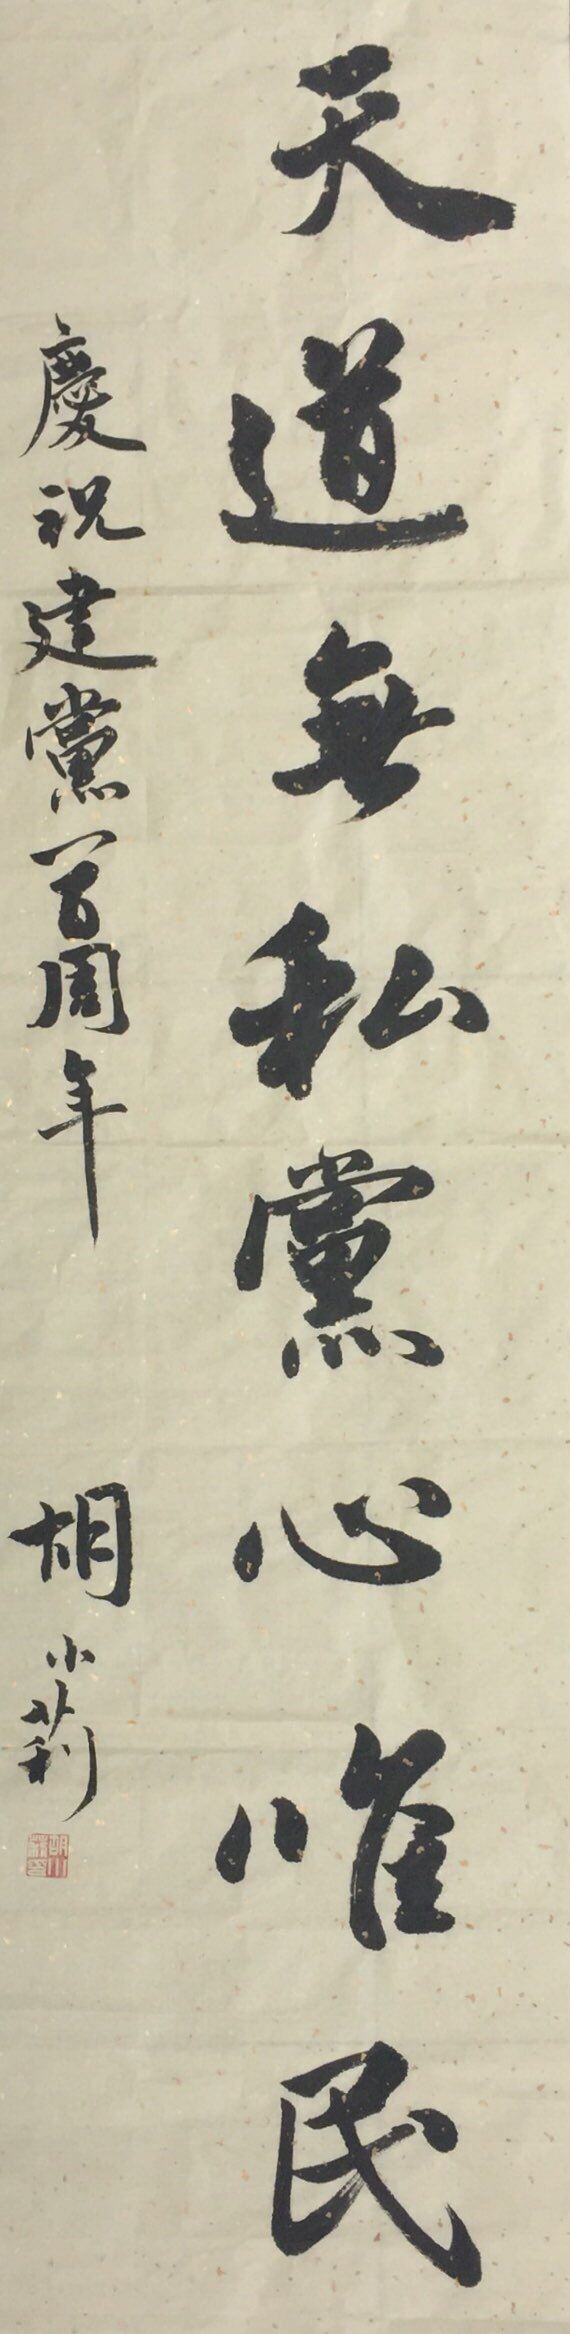 天道無私黨心唯民
慶祝建黨百周年
胡小莉